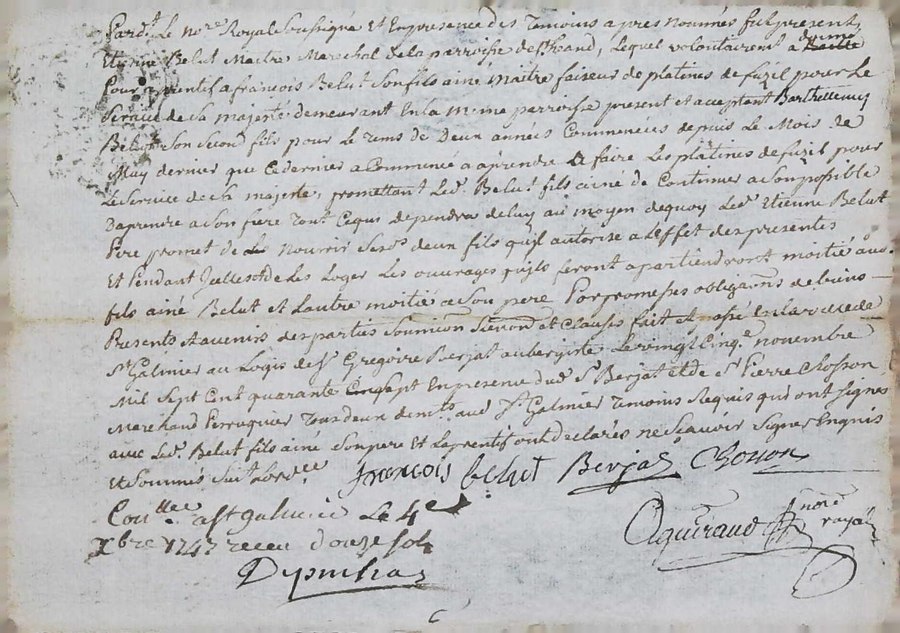 Pard.t Le no.re Royale soussigné Et En presence des Temoins apres nommés fut present
Etienne Belut Maitre Marechal de la perroisse de , Lequel volontairem.t a donné
Pour aprentif a francois Belut Son fils ainé maitre faiseur de platines de fuzil pour Le
Service de Sa majesté demeurant En la meme perroisse present et acceptant Barthellemy
Belut Son Second fils pour Le Tems de Deux années Commencées depuis Le Mois de
May dernier que Ce dernier a Commencé a aprendre a faire Les platines de fuzil pour
Le Service de Sa majesté, promettant Led. Belut fils ainé de Continuer a Son possible
Daprendre a Son frere Tout Ce qui dependra de luy au moyen de quoy Led. Etienne Belut
Pere promet de Nourrir Sesd. deux fils qu'il autorise a L'effet des presentes
Et Pendant de Les Loger Les ouvrages qu'ils feront apartiendront moitié aud.
fils ainé Belut Et L'autre moitié a Son pere Par promesses obliga.ns de biens
Presents Et avenir des parties Soumi.on Renon.on et Clauses fait Et passé En la ville de
S.t Galmier au Logis de S.r Gregoire Berjat aubergiste Le vingt Cinq.e novembre
Mil Sept Cent quarante Sept En presence dud. S.r Berjat Et de S.r Pierre Chosson
Marchand Perruquier Tous deux dem.ts aud. S.t Galmier Temoins Requis qui ont Signés
avec Led. Belut fils ainé Son pere Et L'aprentif ont declarés ne Scavoir Signer Enquis
Et Sommés
francois belut Berjat Chosson
Con.llee a St galmier Le 4e
Xbre 1747 receu douze sols
Aguiraud no.re royal